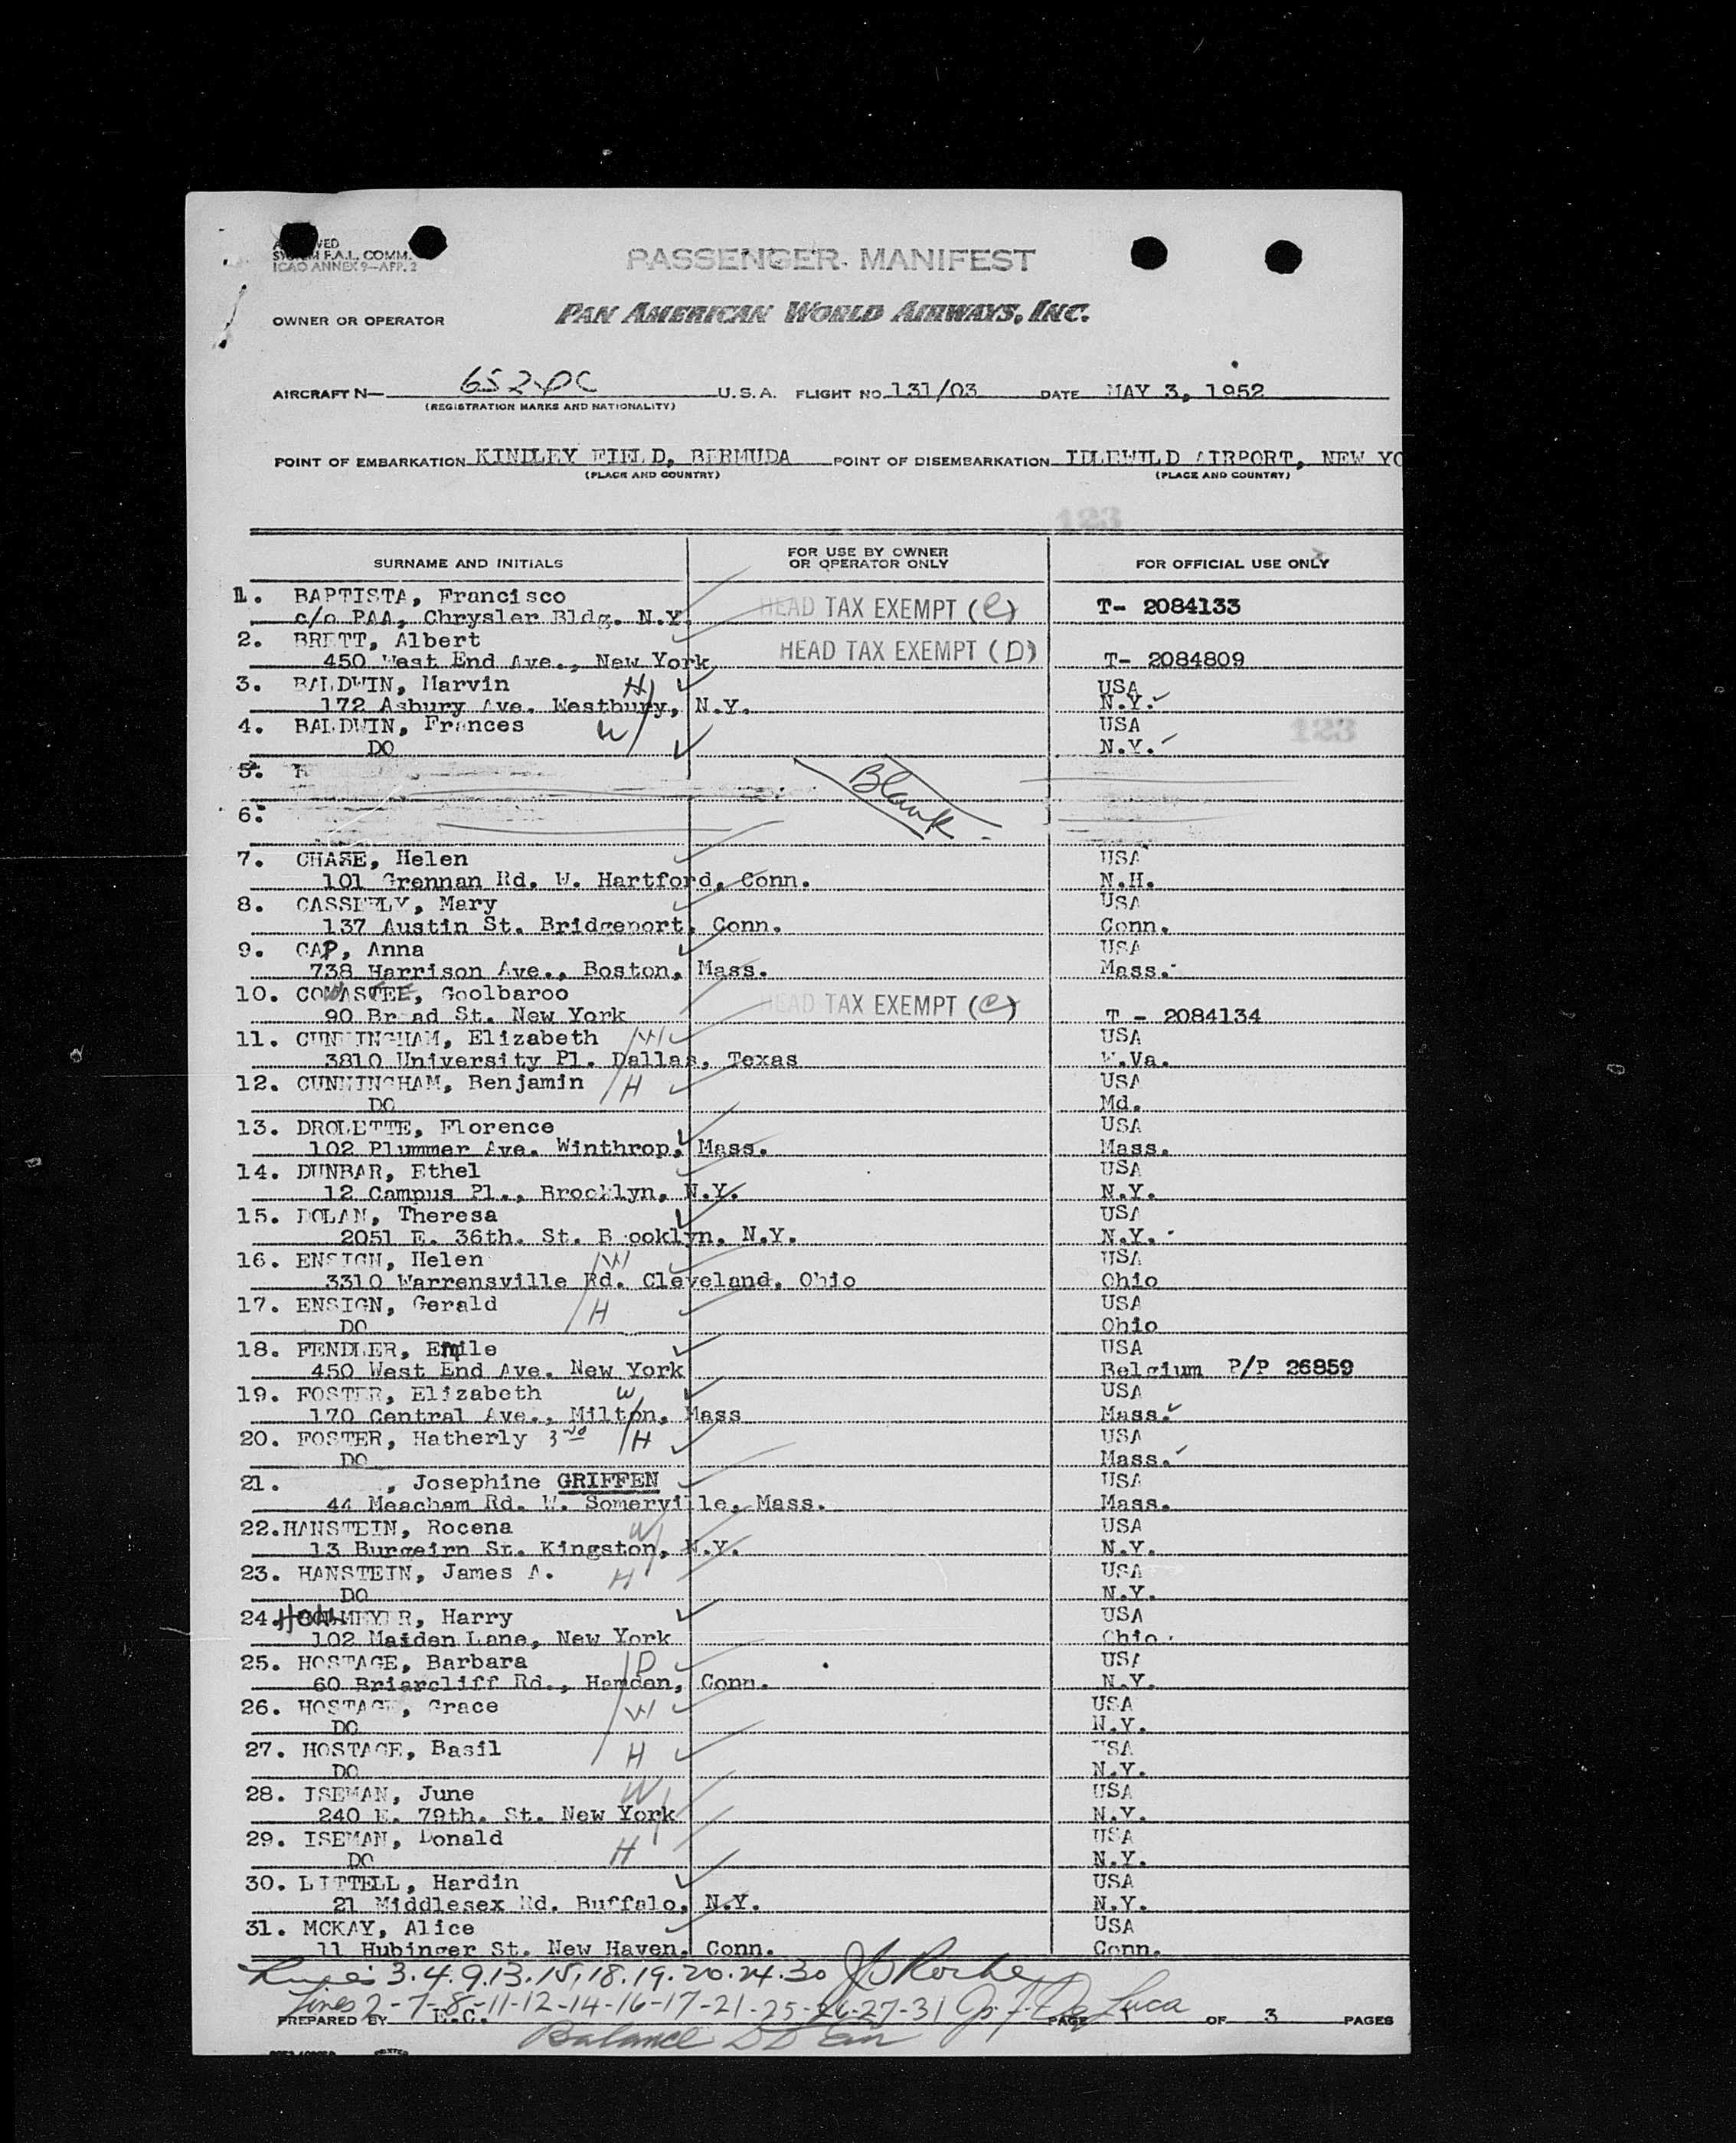 PASSENGER MANIFEST
SYSTEM F.A.L. COMM.
ICAO ANNEX 9—APP. 2
OWNER OR OPERATOR PAN AMERICAN WORLD AIRWAYS, INC.
AIRCRAFT N— U.S.A. FLIGHT NO. 131/03 DATE MAY 3, 1952
(REGISTRATION MARKS AND NATIONALITY)
POINT OF EMBARKATION KINDLEY FIELD, BERMUDA POINT OF DISEMBARKATION IDLEWILD AIRPORT, NEW YO
(PLACE AND COUNTRY) (PLACE AND COUNTRY)
123
SURNAME AND INITIALS FOR USE BY OWNER OR OPERATOR ONLY FOR OFFICIAL USE ONLY
1. BAPTISTA, Francisco
c/o PAA, Chrysler Bldg. N.Y. HEAD TAX EXEMPT (C) T- 2084133
2. BRETT, Albert HEAD TAX EXEMPT (D)
450 West End Ave., New York, T- 2084809
3. BALDWIN, Marvin H USA
172 Asbury Ave. Westbury, N.Y. N.Y.
4. BALDWIN, Frances W USA 123
DO N.Y.
5.
Blank
6.
7. CHASE, Helen USA
101 Grennan Rd. W. Hartford, Conn. N.H.
8. CASSIDLY, Mary USA
137 Austin St. Bridgeport, Conn. Conn.
9. CAP, Anna USA
738 Harrison Ave., Boston, Mass. Mass.
10. Goolbaroo HEAD TAX EXEMPT (C)
90 Broad St. New York T - 2084134
11. CUNNINGHAM, Elizabeth W USA
3810 University Pl. Dallas, Texas W.Va.
12. CUNNINGHAM, Benjamin H USA
DO Md.
13. DROLETTE, Florence USA
102 Plummer Ave. Winthrop, Mass. Mass.
14. DUNBAR, Ethel USA
12 Campus Pl., Brooklyn, N.Y. N.Y.
15. DOLAN, Theresa USA
2051 E. 36th. St. B ooklyn. N.Y. N.Y.
16. ENSIGN, Helen W USA
3310 Warrensville Rd. Cleveland, Ohio Ohio
17. ENSIGN, Gerald H USA
DO Ohio
18. FENDLER, Emile USA
450 West End Ave. New York Belgium P/P 26859
19. FOSTER, Elizabeth W USA
170 Central Ave., Milton, Mass Mass.
20. FOSTER, Hatherly 3rd H USA
DO Mass.
21. , Josephine GRIFFEN USA
44 Meacham Rd. W. Somerville, Mass. Mass.
22. HANSTEIN, Rocena W USA
13 Burgeirn St. Kingston, N.Y. N.Y.
23. HANSTEIN, James A. H USA
DO N.Y.
24. Harry USA
102 Maiden Lane, New York Ohio
25. HOSTAGE, Barbara D USA
60 Briarcliff Rd., Hamden, Conn. N.Y.
26. HOSTAGE, Grace W USA
DO N.Y.
27. HOSTAGE, Basil H USA
DO N.Y.
28. ISEMAN, June W USA
240 E. 79th. St. New York N.Y.
29. ISEMAN, Donald H USA
DO N.Y.
30. LITTELL, Hardin USA
21 Middlesex Rd. Buffalo, N.Y. N.Y.
31. MCKAY, Alice USA
11 Hubinger St. New Haven, Conn. Conn.
3.4.9.13.15.18.19.20.24.30 Roche
Lines 2-7-8-11-12-14-16-17-21-25-26-27-31 De Luca
PREPARED BY E.C. PAGE 1 OF 3 PAGES
Balance